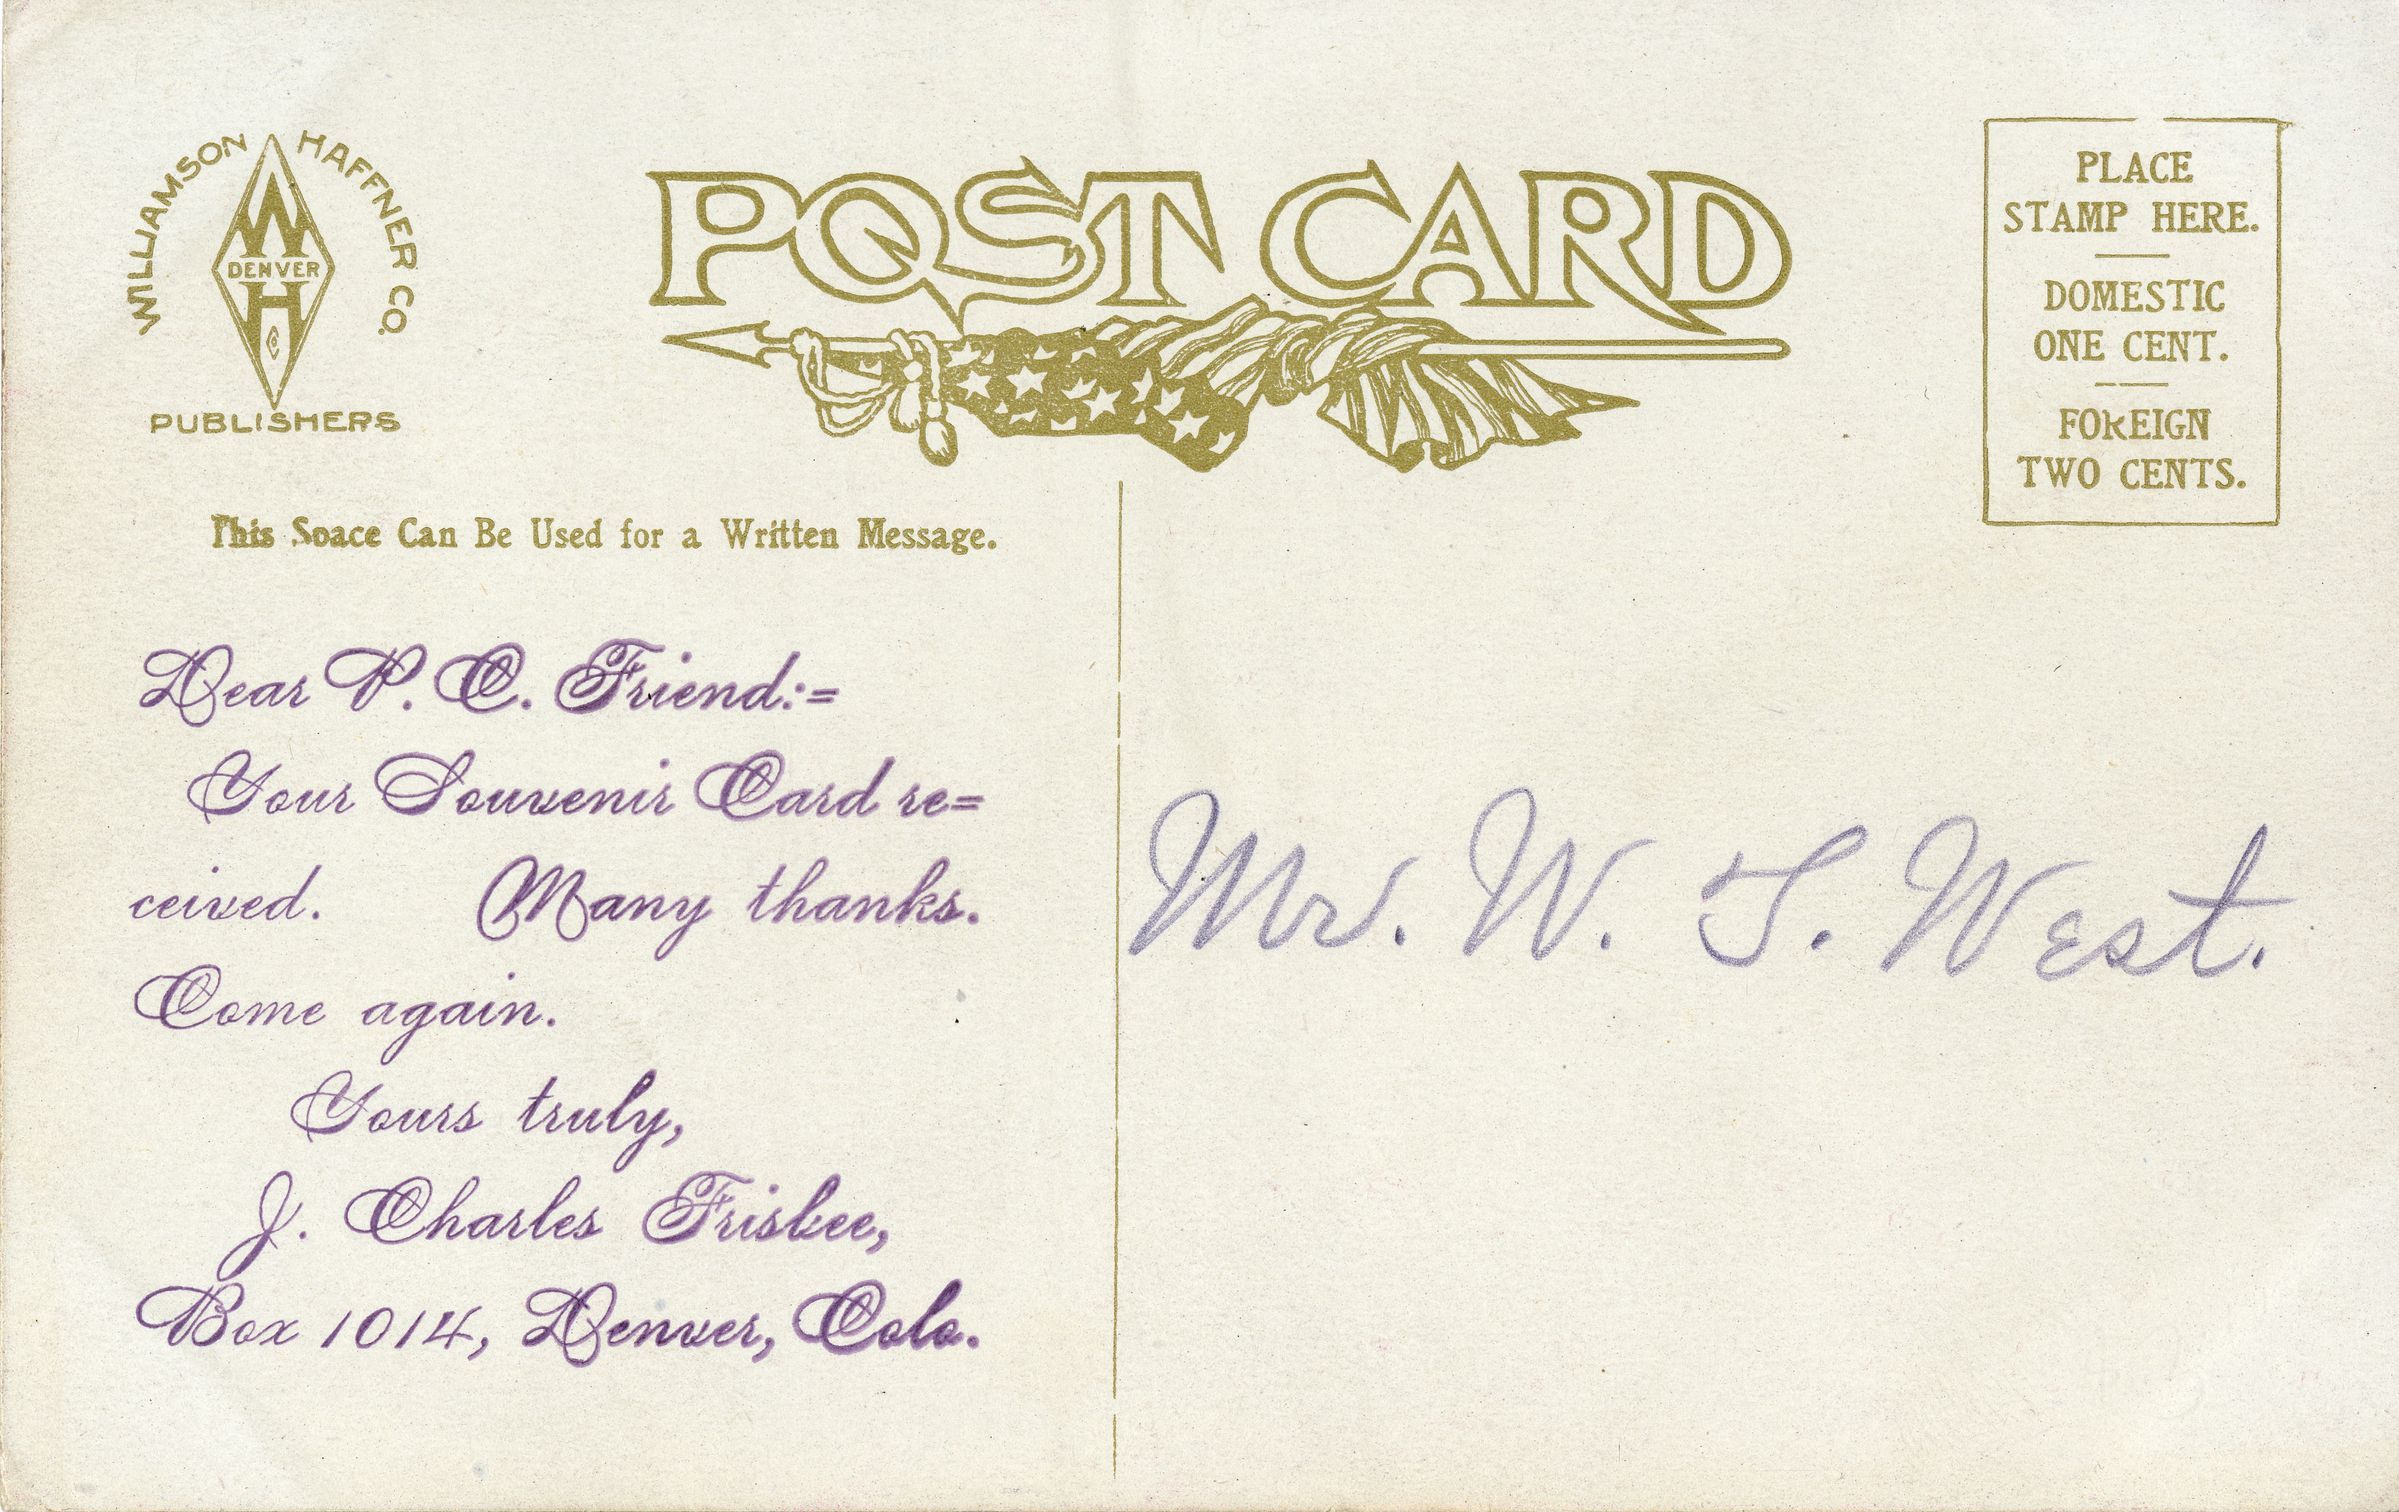 WILLIAMSON HAFFNER CO.
W
DENVER
H
CO
PUBLISHERS
POST CARD
PLACE
STAMP HERE.
DOMESTIC
ONE CENT.
FOREIGN
TWO CENTS.
This Space Can Be Used for a Written Message.
Dear P. C. Friend:=
Your Souvenir Card re=
ceived. Many thanks.
Come again.
Yours truly,
J. Charles Frisbee,
Box 1014, Denver, Colo.
Mr. W. T. West.